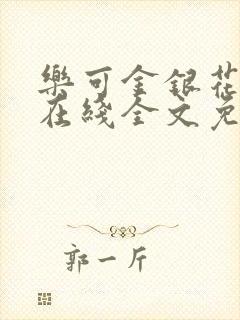 樂可金銀花
在綫全文免
郭一斤